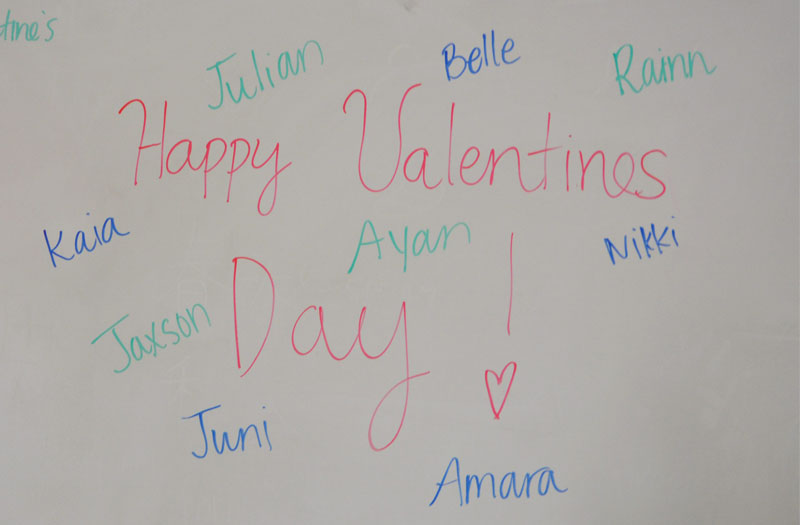 tine's
Julian
Belle
Rainn
Happy Valentines
Kaia
Ayan
Nikki
Day !
Jaxson
Juni
Amara